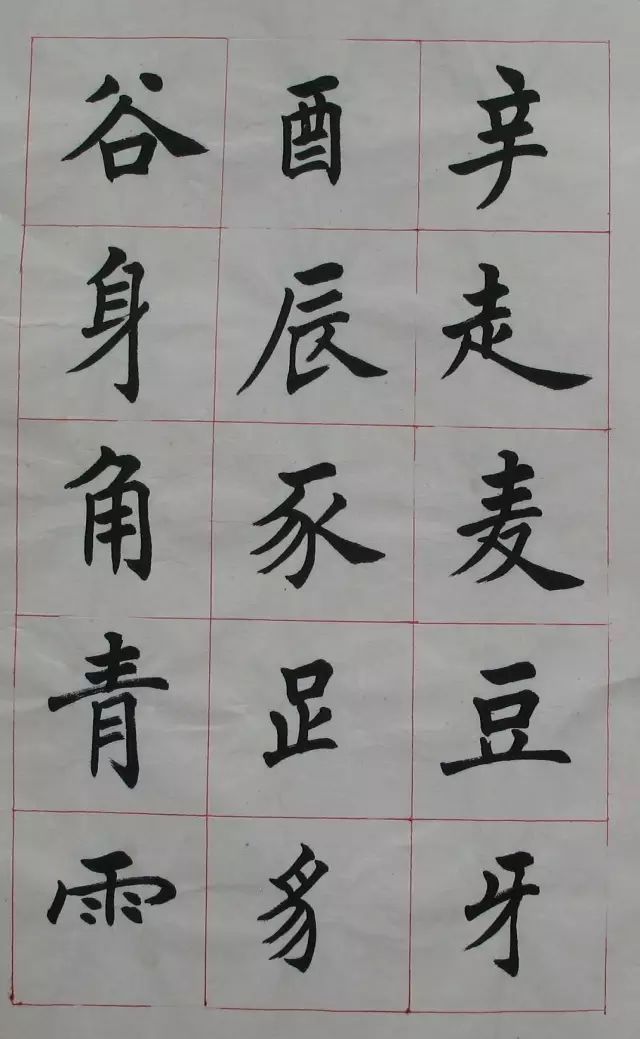 辛走麦豆牙
酉辰豕足豸
谷身角青雨